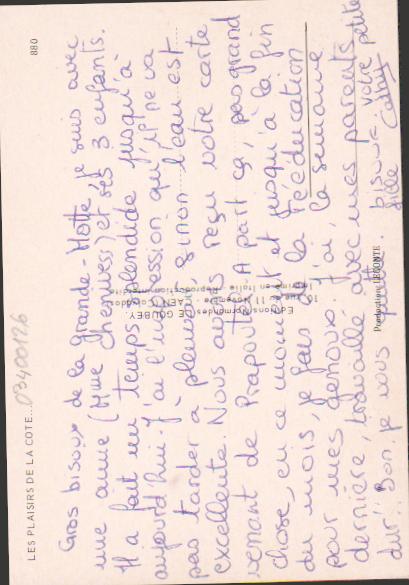 LES PLAISIRS DE LA COTE...
03400126
880
Gros bisous de la grande-Motte, je suis avec
une amie (Mme) et ses 3 enfants.
Il a fait un temps splendide jusqu'à
aujourd'hui - J'ai l'impression qu'il ne va
pas tarder à pleuvoir sinon l'eau est
excellente. Nous avons reçu votre carte
venant de Prapoutel. A part ça, pas grand
chose, en ce moment et jusqu'à la fin
du mois, je fais de la rééducation
pour mes genoux. J'ai, la semaine
dernière, travaillé avec mes parents
dur!! Bon je vous bisous - votre petite
fille Cathy
Editions Normandes LE GOUBEY
10, rue 11 Novembre - CAEN (Calvados)
Imprimé en Italie - Reproduction interdite
Production LECONTE